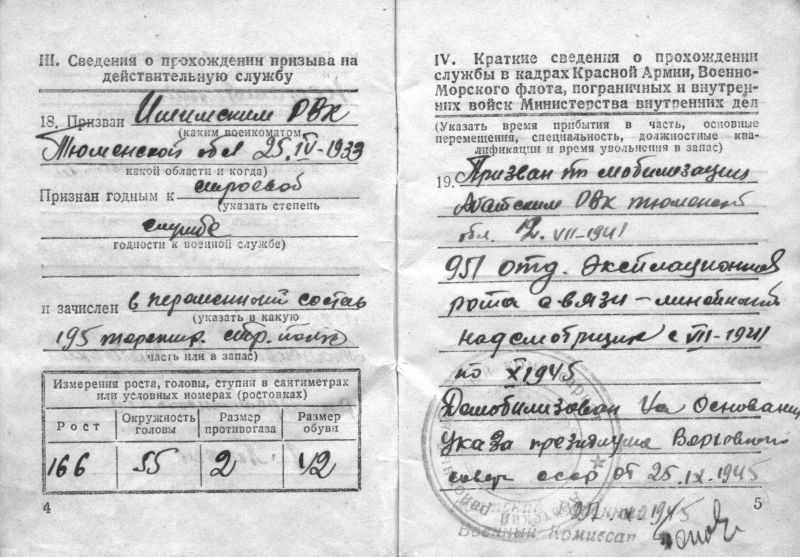 III. Сведения о прохождении призыва на
действительную службу
18. Призван Ишимским РВК
(каким военкоматом
Тюменской обл 25.IV-1933
какой области и когда)
Признан годным к строевой
(указать степень
службе
годности к военной службе)
и зачислен в переменный состав
(указать в какую
195 стр. полк
часть или в запас)
Измерения роста, головы, ступни в сантиметрах
или условных номерах (ростовках)
Рост
Окружность головы
Размер противогаза
Размер обуви
166 55 2 42
4
IV. Краткие сведения о прохождении
службы в кадрах Красной Армии, Военно-
Морского флота, пограничных и внутрен-
них войск Министерства внутренних дел
(Указать время прибытия в часть, основные
перемещения, специальность, должностные ква-
лификации и время увольнения в запас)
19. Призван по мобилизации
Абатским РВК Тюменской
обл. 2.VII-1941
951 отд. Эксплационная
рота связи - линейный
надсмотрщик с VII-1941
по XI 1945
Демобилизован На Основании
Указа президиума Верховного
совет ссср от 25.IX.1945
1945
Военный Комиссар
5